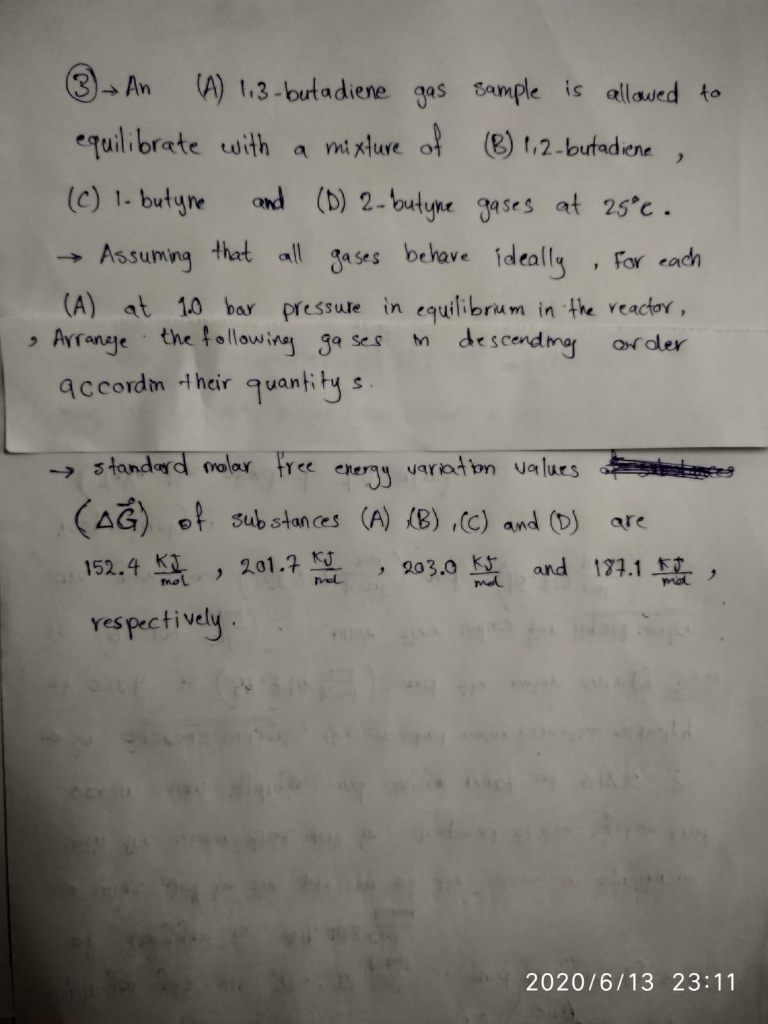 ③→ An (A) 1,3-butadiene gas sample is allowed to
equilibrate with a mixture of (B) 1,2-butadiene ,
(C) 1-butyne and (D) 2-butyne gases at 25°C .
→ Assuming that all gases behave ideally , For each
(A) at 1.0 bar pressure in equilibrium in the reactor,
, Arrange the following gases in descending order
accordin their quantity s.
→ standard molar free energy variation values
(ΔG°) of substances (A) ,(B) ,(C) and (D) are
152.4 KJ/mol , 201.7 KJ/mol , 203.0 KJ/mol and 187.1 KJ/mol ,
respectively.
2020/6/13 23:11